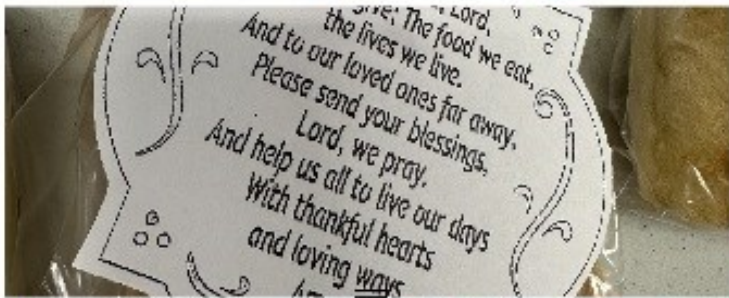 Lord,
give; The food we eat,
the lives we live.
And to our loved ones far away,
Please send your blessings,
Lord, we pray.
And help us all to live our days
With thankful hearts
and loving ways